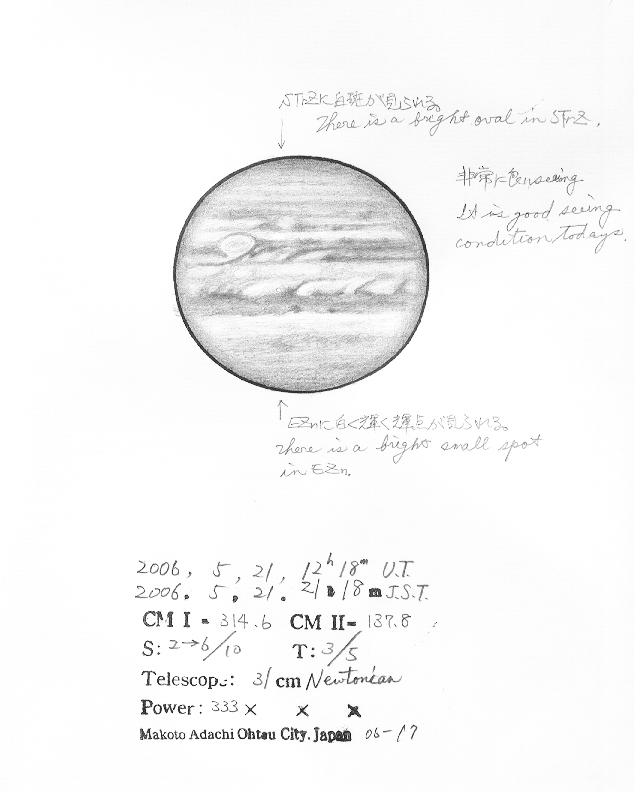 STrZに白斑が見られる。
There is a bright oval in STrZ.
非常に seeing
It is good seeing
condition todays.
EZnに白く輝く輝点が見られる。
There is a bright small spot
in EZn.
2006, 5, 21, 12h 18m U.T.
2006. 5. 21. 21 h 18 m J.S.T.
CM I = 314.6 CM II= 137.8
S: 2→6/10 T: 3/5
Telescope: 31 cm Newtonian
Power: 333 × × ×
Makoto Adachi Ohtsu City. Japan 06-17